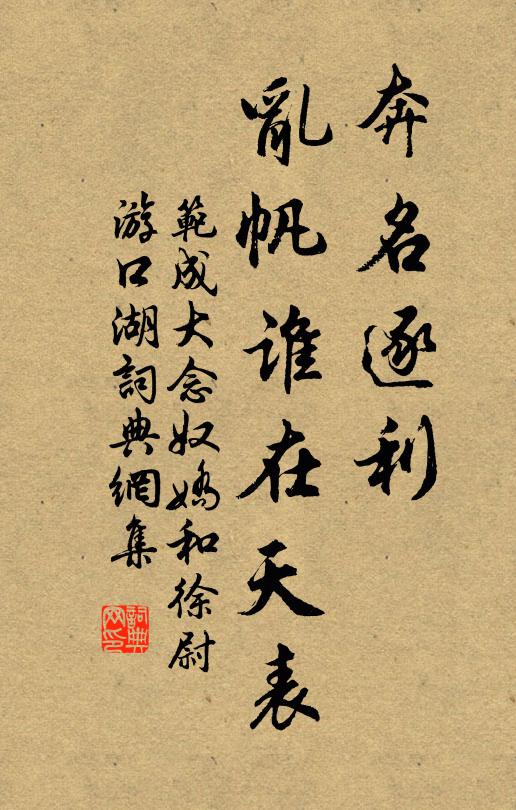 奔名逐利
亂帆誰在天表
範成大念奴嬌和徐尉
游口湖詞典網集
詞典網印